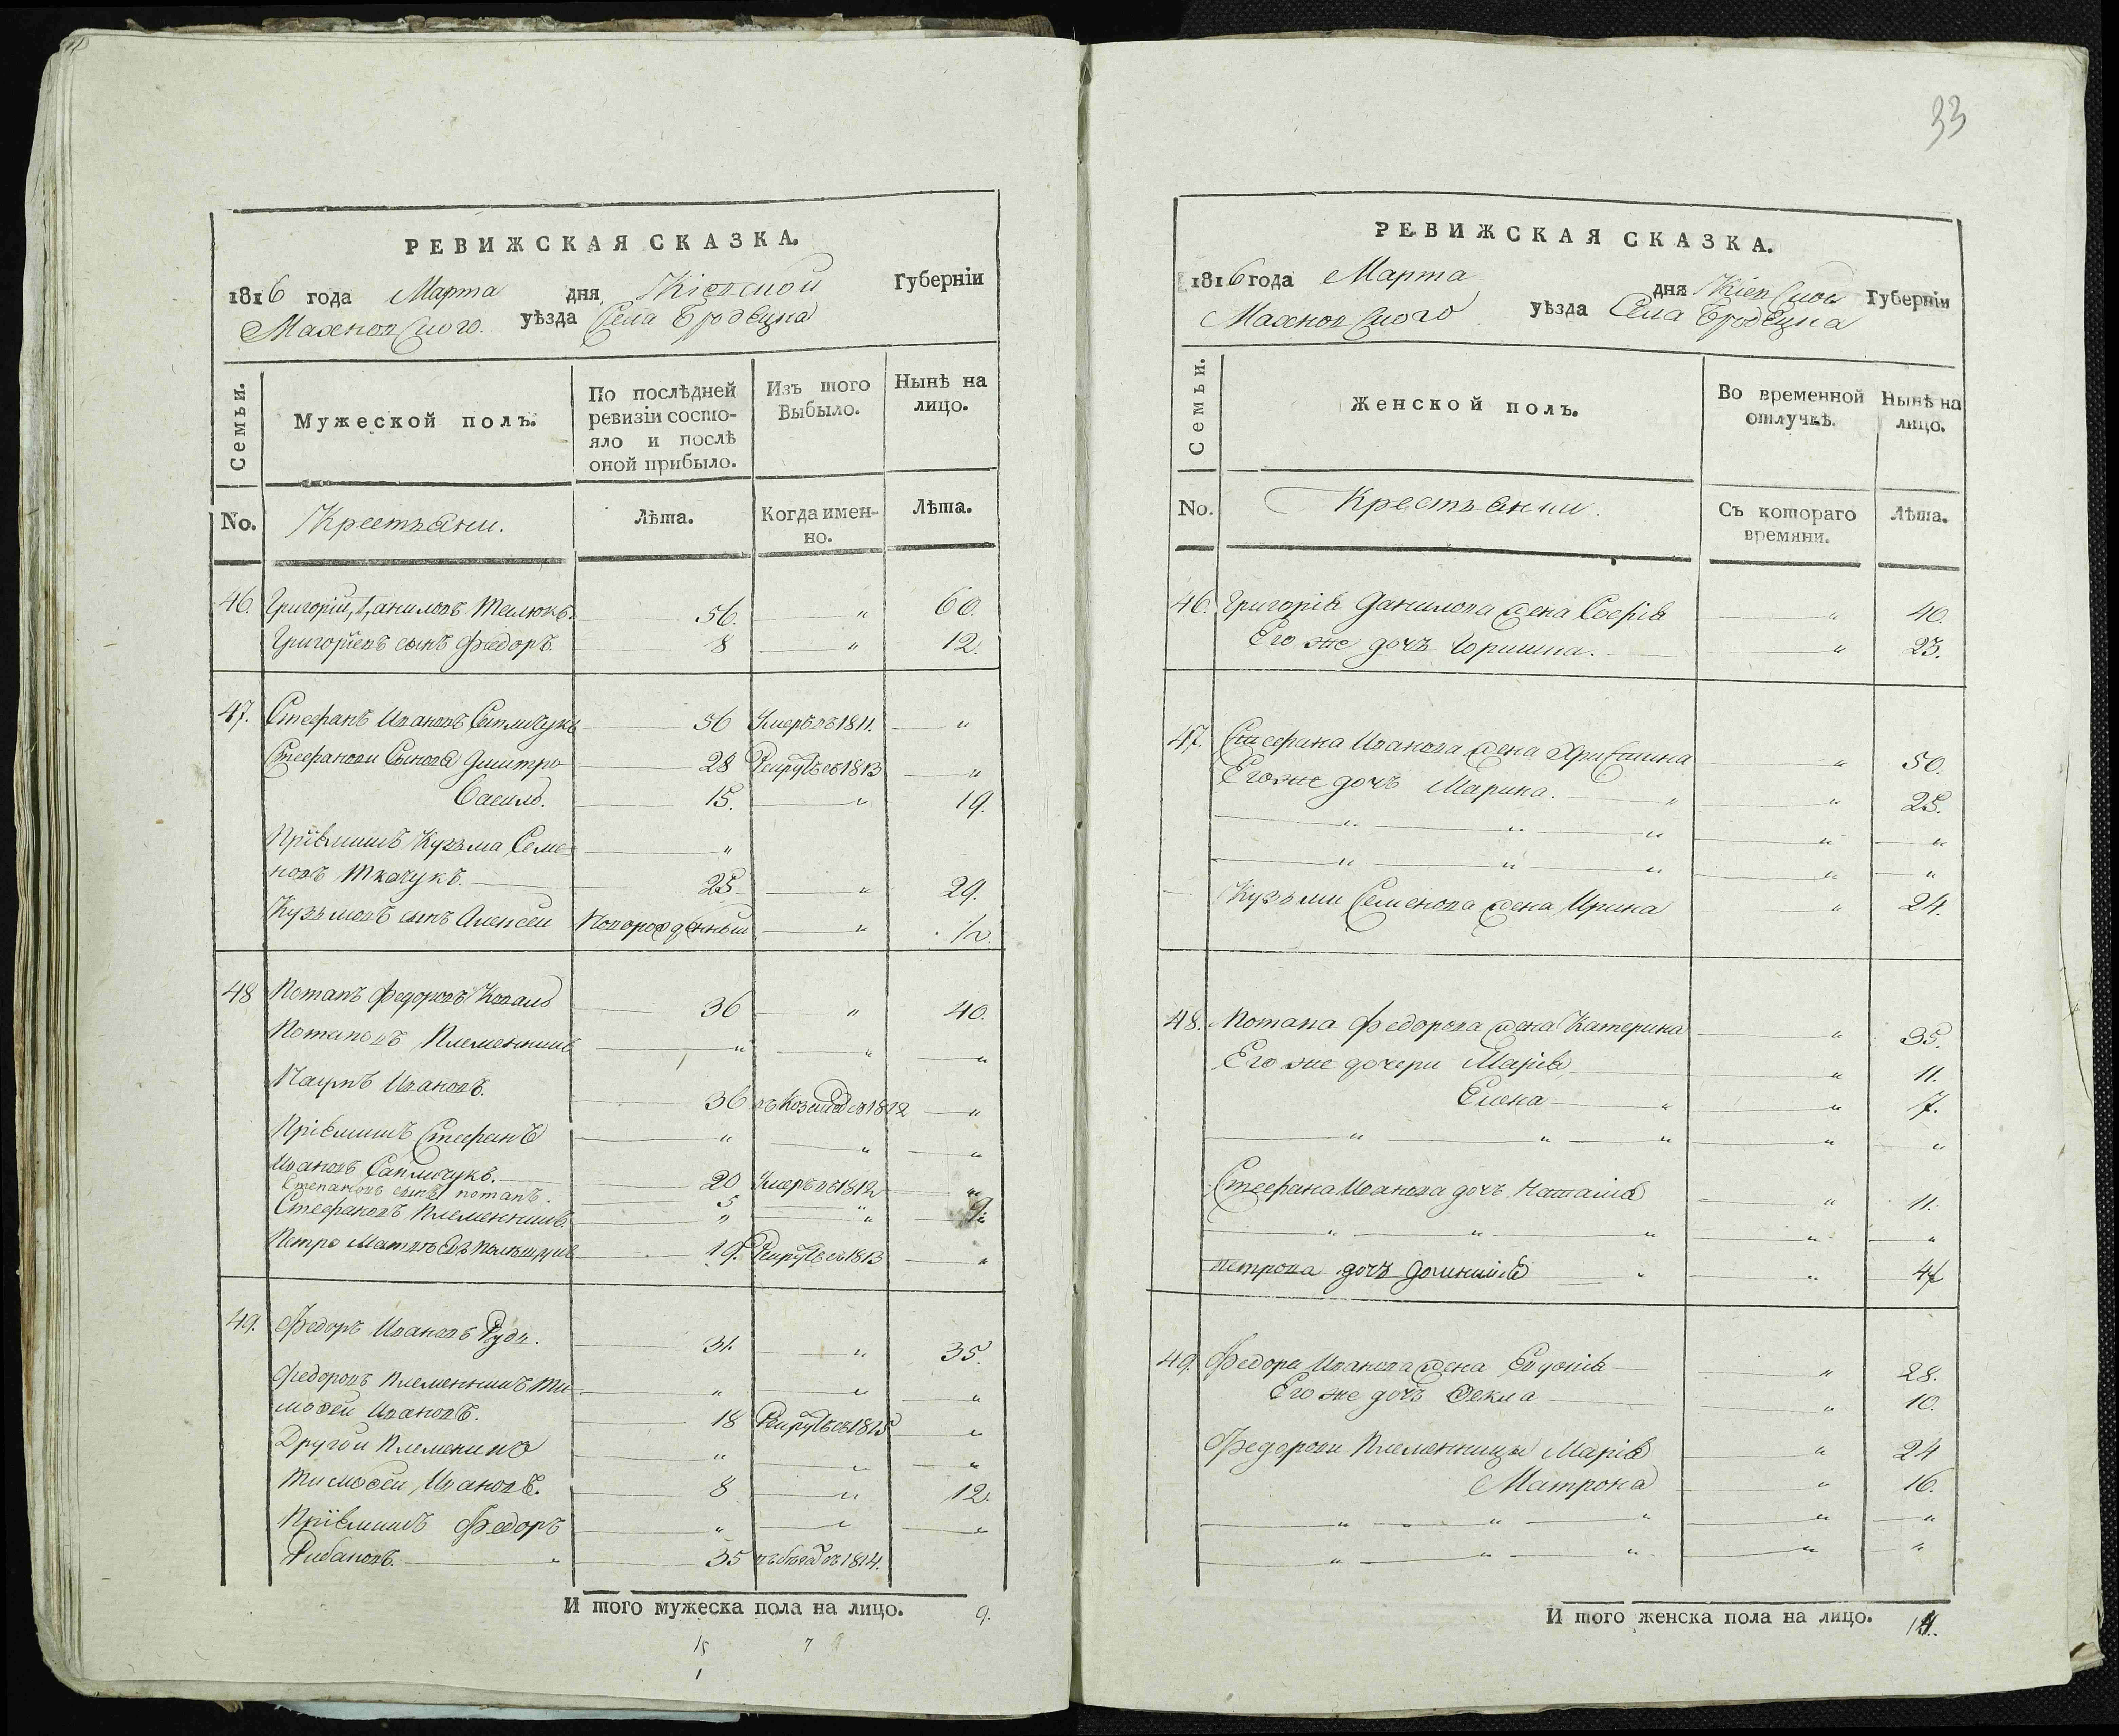 33
РЕВИЖСКАЯ СКАЗКА.
1816 года Марта дня Кіевской Губерніи
Махновскаго уѣзда Села Бродецка
Семьи.
Мужеской полъ.
По послѣдней ревизіи состояло и послѣ оной прибыло.
Изъ того Выбыло.
Нынѣ на лицо.
No.
Крестьяни.
Лѣта.
Когда именно.
Лѣта.
46. Григорій Даниловъ Телюкъ. 56. " 60.
Григоріевъ сынъ Федоръ. 8 " 12.
47. Стефанъ Ивановъ 56 Умеръ въ 1811. "
Стефанови Сынова Дмитро 28 Рекрутъ въ 1813 "
Василь. 15. " 19.
Пріемишъ Кузьма Семе- "
новъ Ткачукъ. 25 " 29.
Кузьмовъ сынъ Алексей Новорожденный " 1/2.
48 Потапъ Федоровъ Коваль 36 " 40.
Потаповъ Племенникъ " " "
Наумъ Ивановъ. 36 въ 1812 "
Пріемишъ Стефанъ " " "
Ивановъ 20 Умеръ въ 1812 "
Степановъ сынъ потапъ. 5 " 9.
Стефановъ Племенникъ " " "
Петро 19. Рекрутъ въ 1813 "
49. Федоръ Ивановъ Рудь. 31. " 35.
Федоровъ Племенникъ Ти- " " "
мофей Ивановъ. 18 Рекрутъ въ 1815 "
Другой Племеникъ " " "
Тимофей Ивановъ. 8 " 12.
Пріемишъ Федоръ " " "
Рибаковъ. " 35 въ 1814.
И того мужеска пола на лицо. 9.
15 7
1
РЕВИЖСКАЯ СКАЗКА.
1816 года Марта дня Кіевской Губерніи
Махновскаго уѣзда Села Бродецка
Семьи.
Женской полъ.
Во временной отлучкѣ.
Нынѣ на лицо.
No.
Крестьянки.
Съ котораго времяни.
Лѣта.
46. Григорія Данилова жена Софія " 40.
Его же дочь Горпина. " 23.
47. Стефана Иванова жена Христина " 50.
Его же дочь Марина. " " 25.
" " " " "
" " " " "
Кузьми Семенова жена Ирина " 24.
48. Потапа Федорова жена Катерина " 35.
Его же дочери Марія " 11.
Елена " " 7.
" " " " "
Стефана Иванова дочь Наталія " 11.
" " " " "
петрова дочь " " 4
49. Федора Иванова жена Евдокія " 28.
Его же дочь Фекла " 10.
Федорови Племенницы Марія " 24
Матрона " 16.
" " " " "
" " " " "
И того женска пола на лицо. 14.